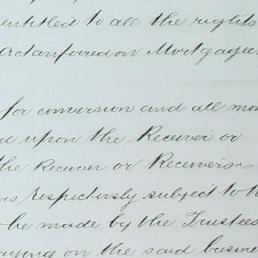 entitled to all the rights
Act conferred on Mortgagees
for conversion and all mon
d upon the Receiver or
the Receiver or Receivers
ors respectively subject to th
be made by the Trustees
rying on the said busine